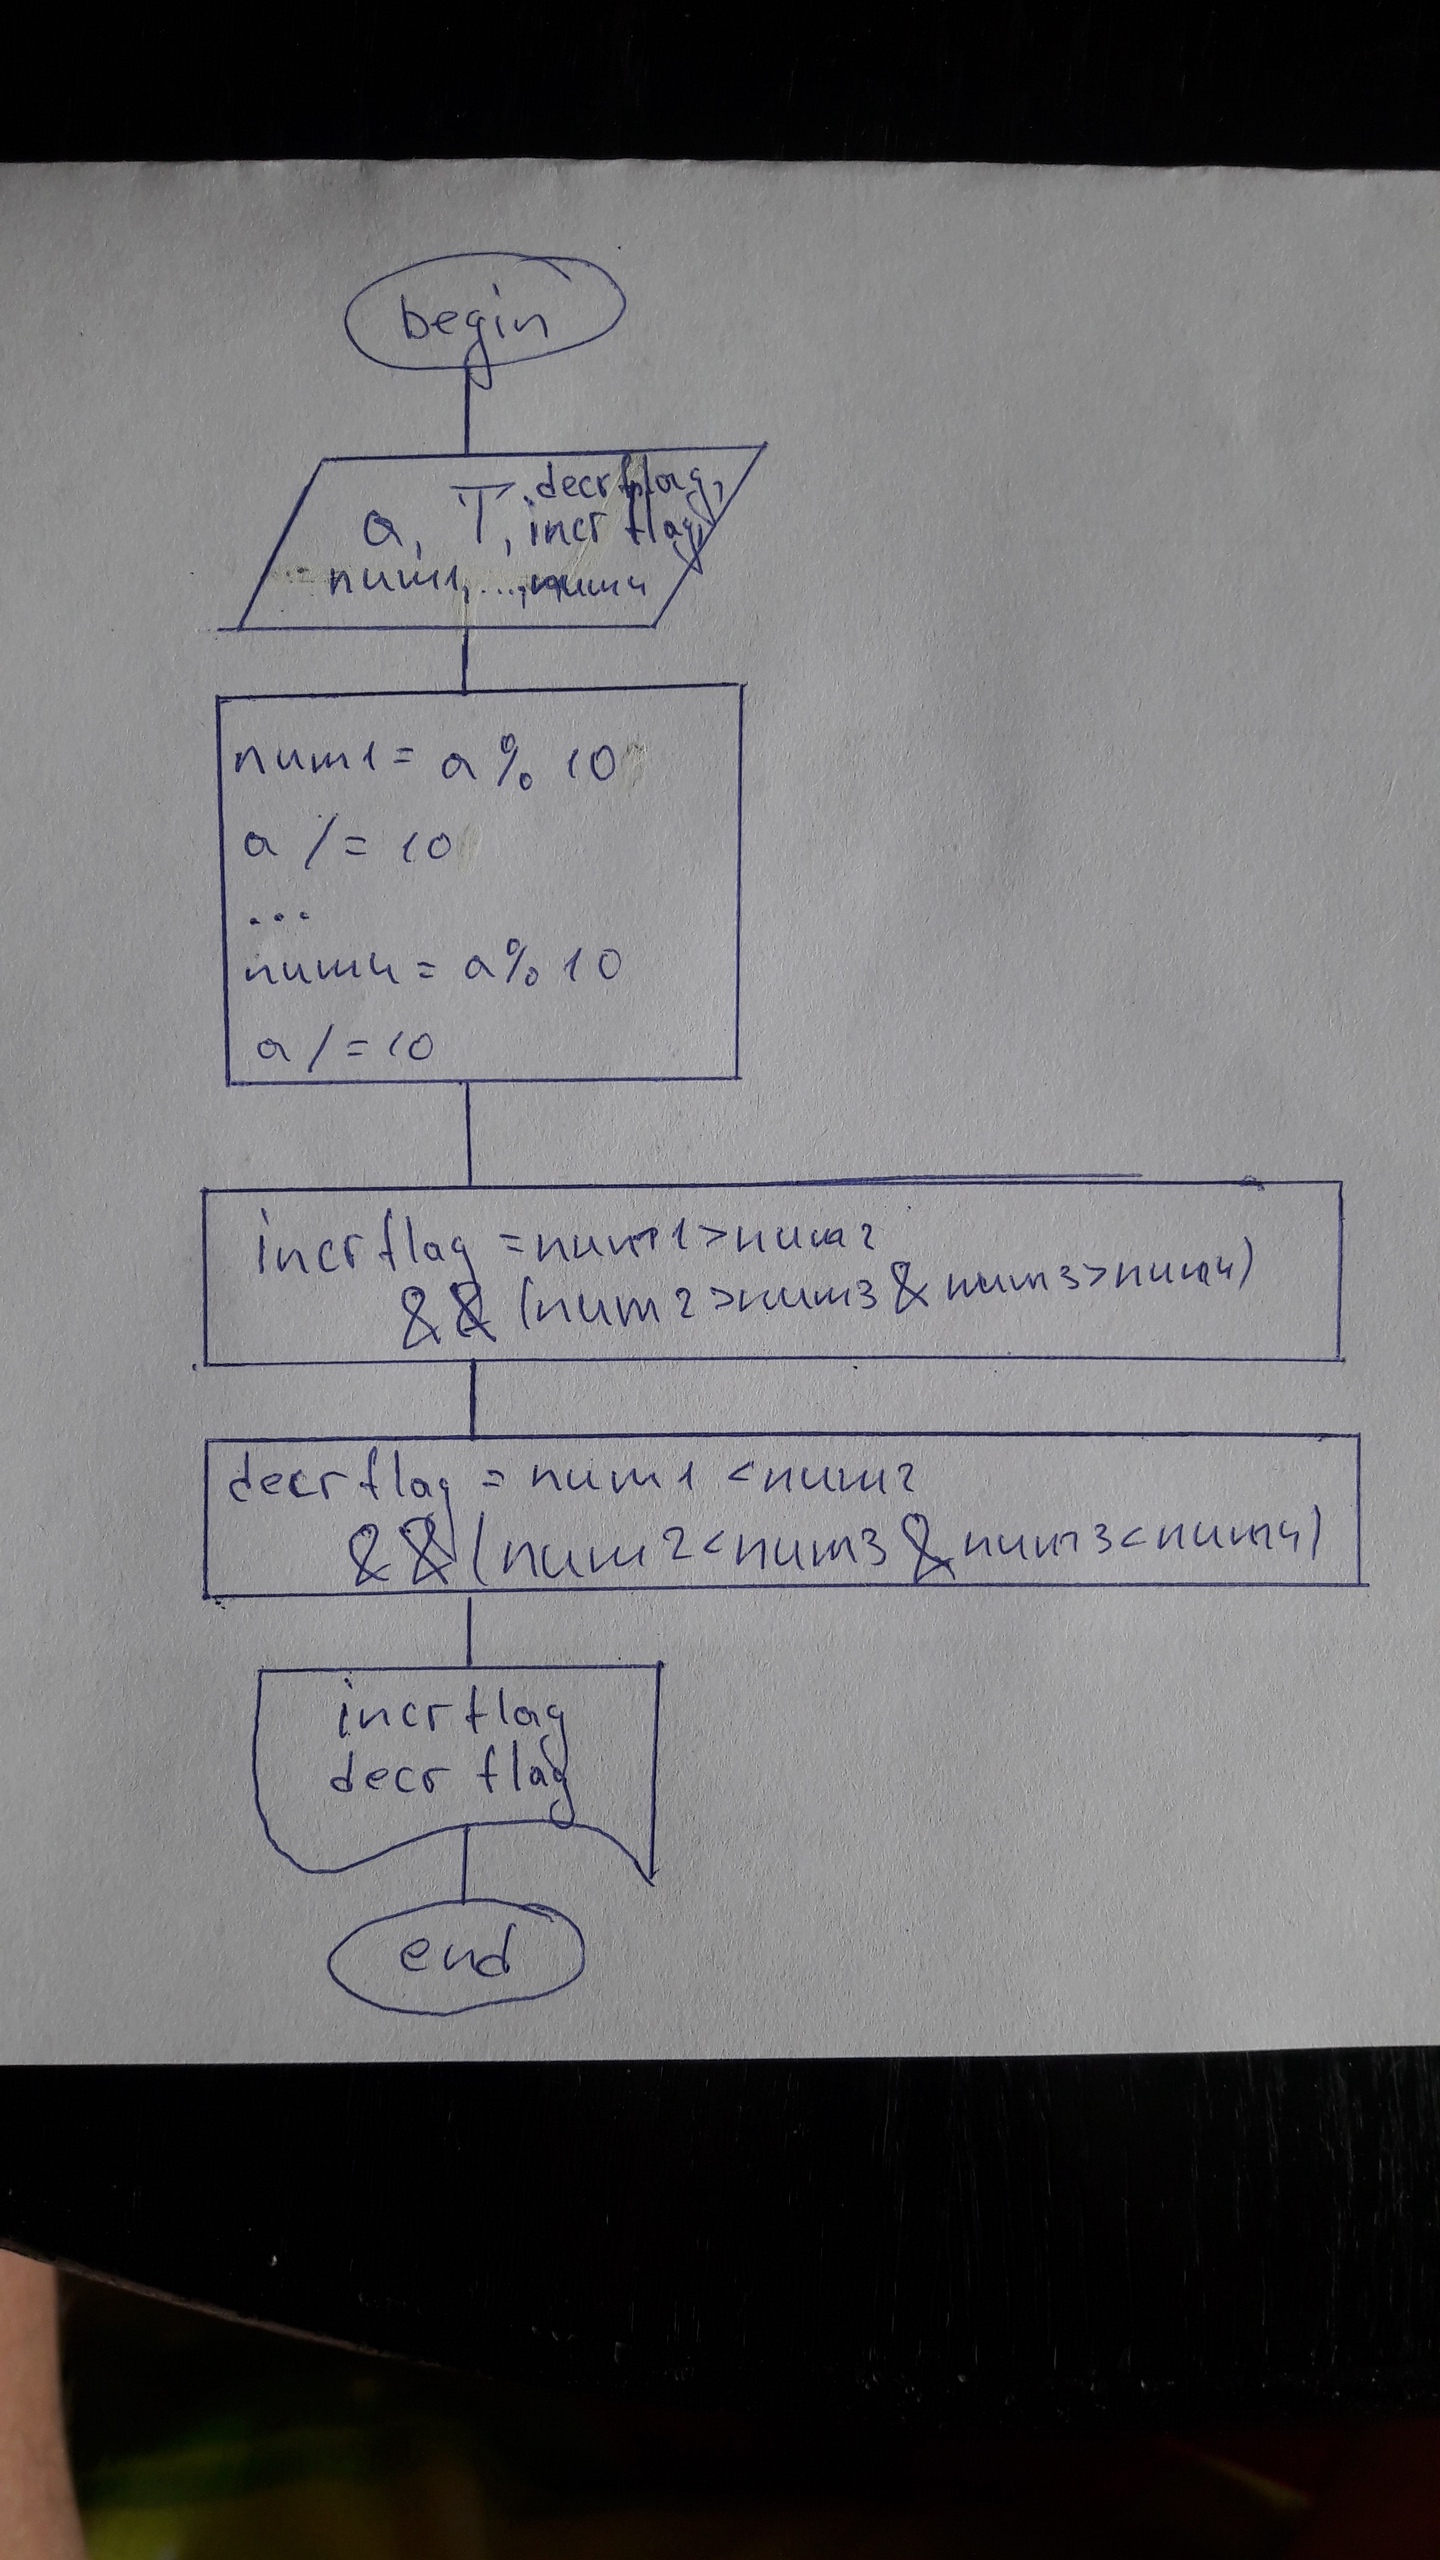 begin
decrflag,
a, T, incrflag,
num1, ..., num4
num1 = a % 10
a /= 10
...
num4 = a % 10
a /= 10
incrflag = num1>num2
&& (num2>num3 & num3>num4)
decrflag = num1 <num2
&& (num2<num3 & num3<num4)
incrflag
decrflag
end